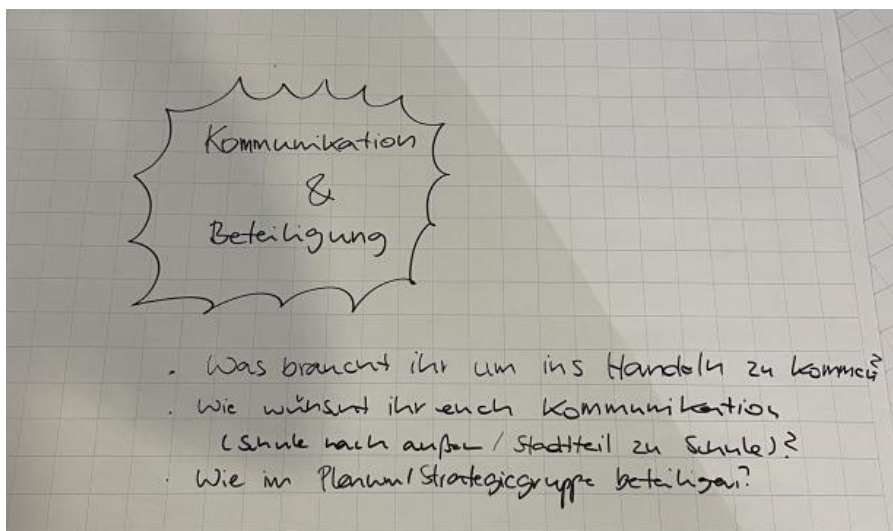 Kommunikation
&
Beteiligung
. Was braucht ihr um ins Handeln zu kommen?
. Wie wünscht ihr euch Kommunikation
(Schule nach außen / Stadtteil zu Schule)?
. Wie im Plenum/Strategiegruppe beteiligen?